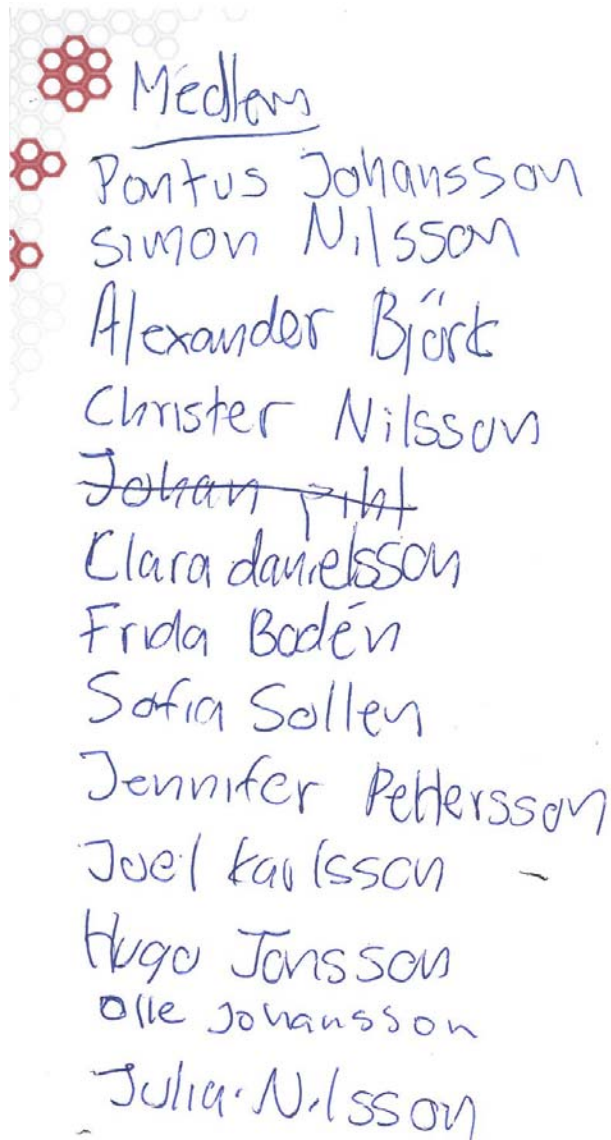 Medlem
Pontus Johansson
Simon Nilsson
Alexander Björk
Christer Nilsson
Johan piht
Clara danielsson
Frida Bodén
Sofia Sollen
Jennifer Pettersson
Joel Karlsson
Hugo Jonsson
Olle Johansson
Julia Nilsson